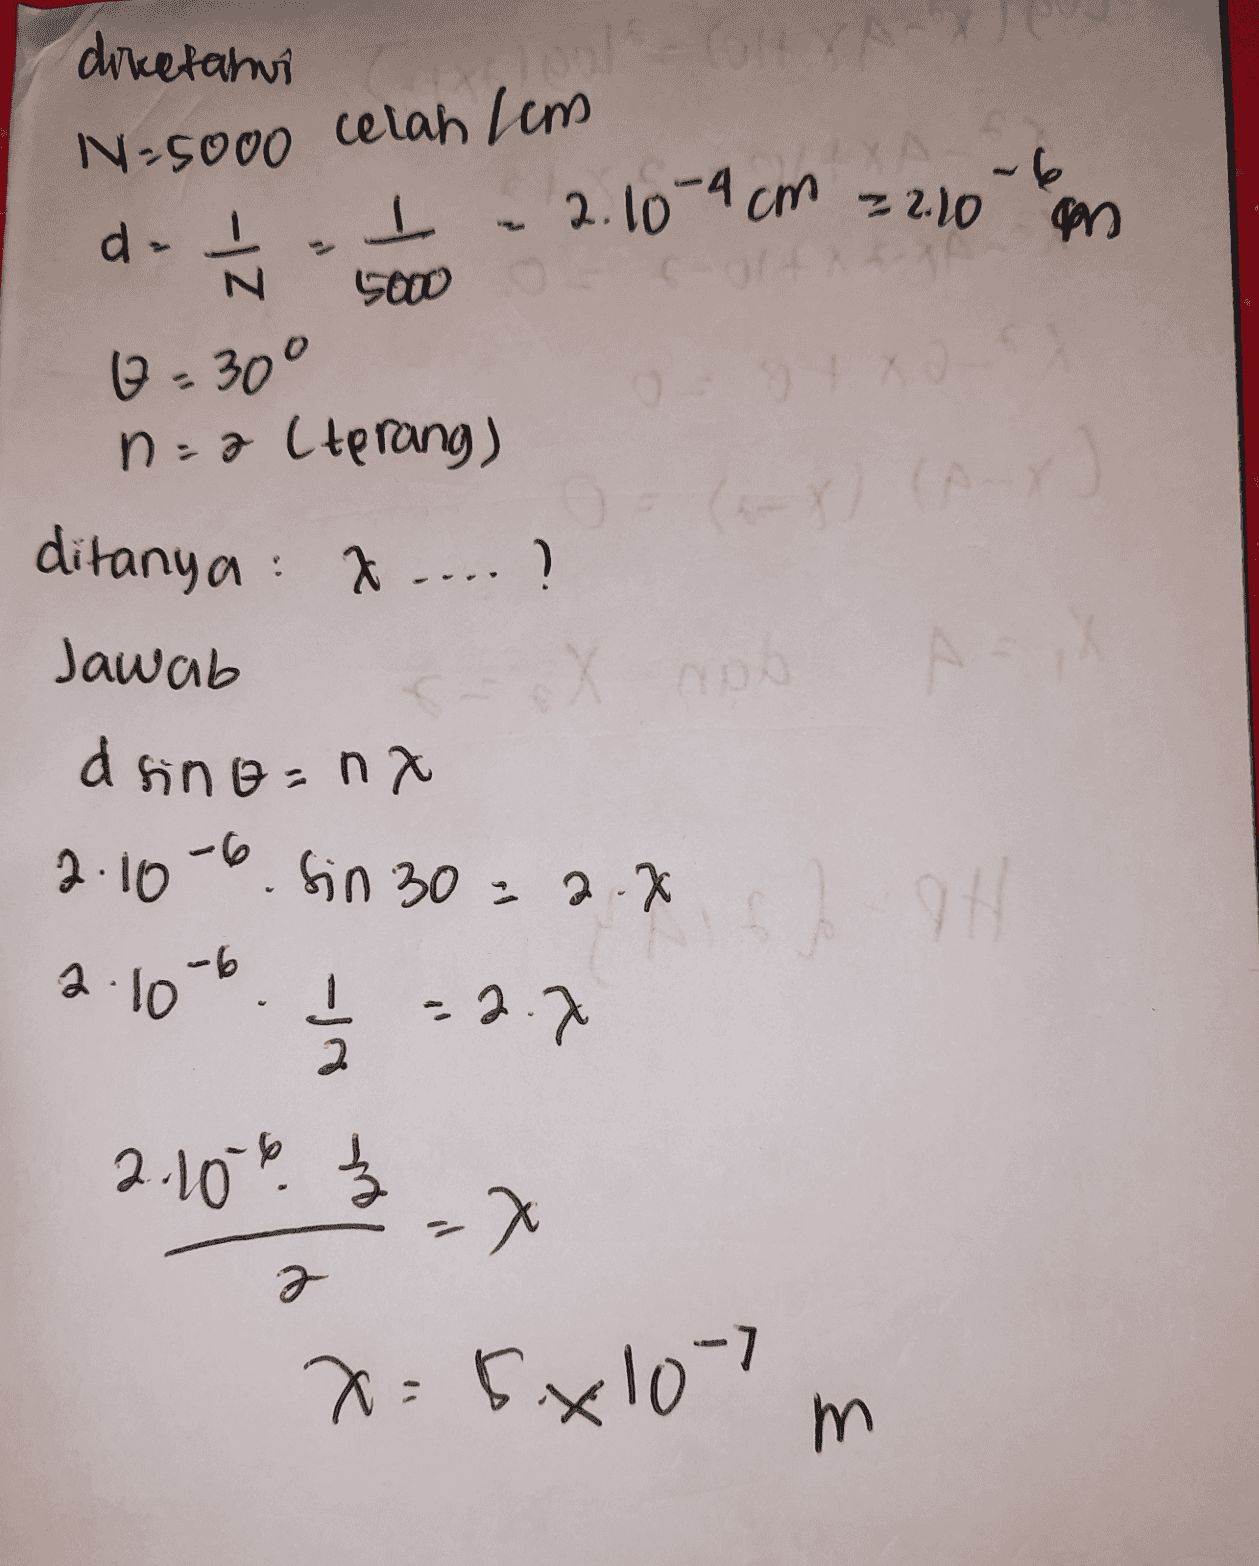 diketahui
N=5000 celah/cm
d = 1/N = 1/5000 = 2.10^-4 cm = 2.10^-6 m
θ = 30°
n = 2 (terang)
ditanya : λ ....?
Jawab
d sin θ = n λ
2.10^-6 . sin 30 = 2.λ
2.10^-6 . 1/2 = 2.λ
2.10^-6 . 1/2 / 2 = λ
λ = 5 x 10^-7 m